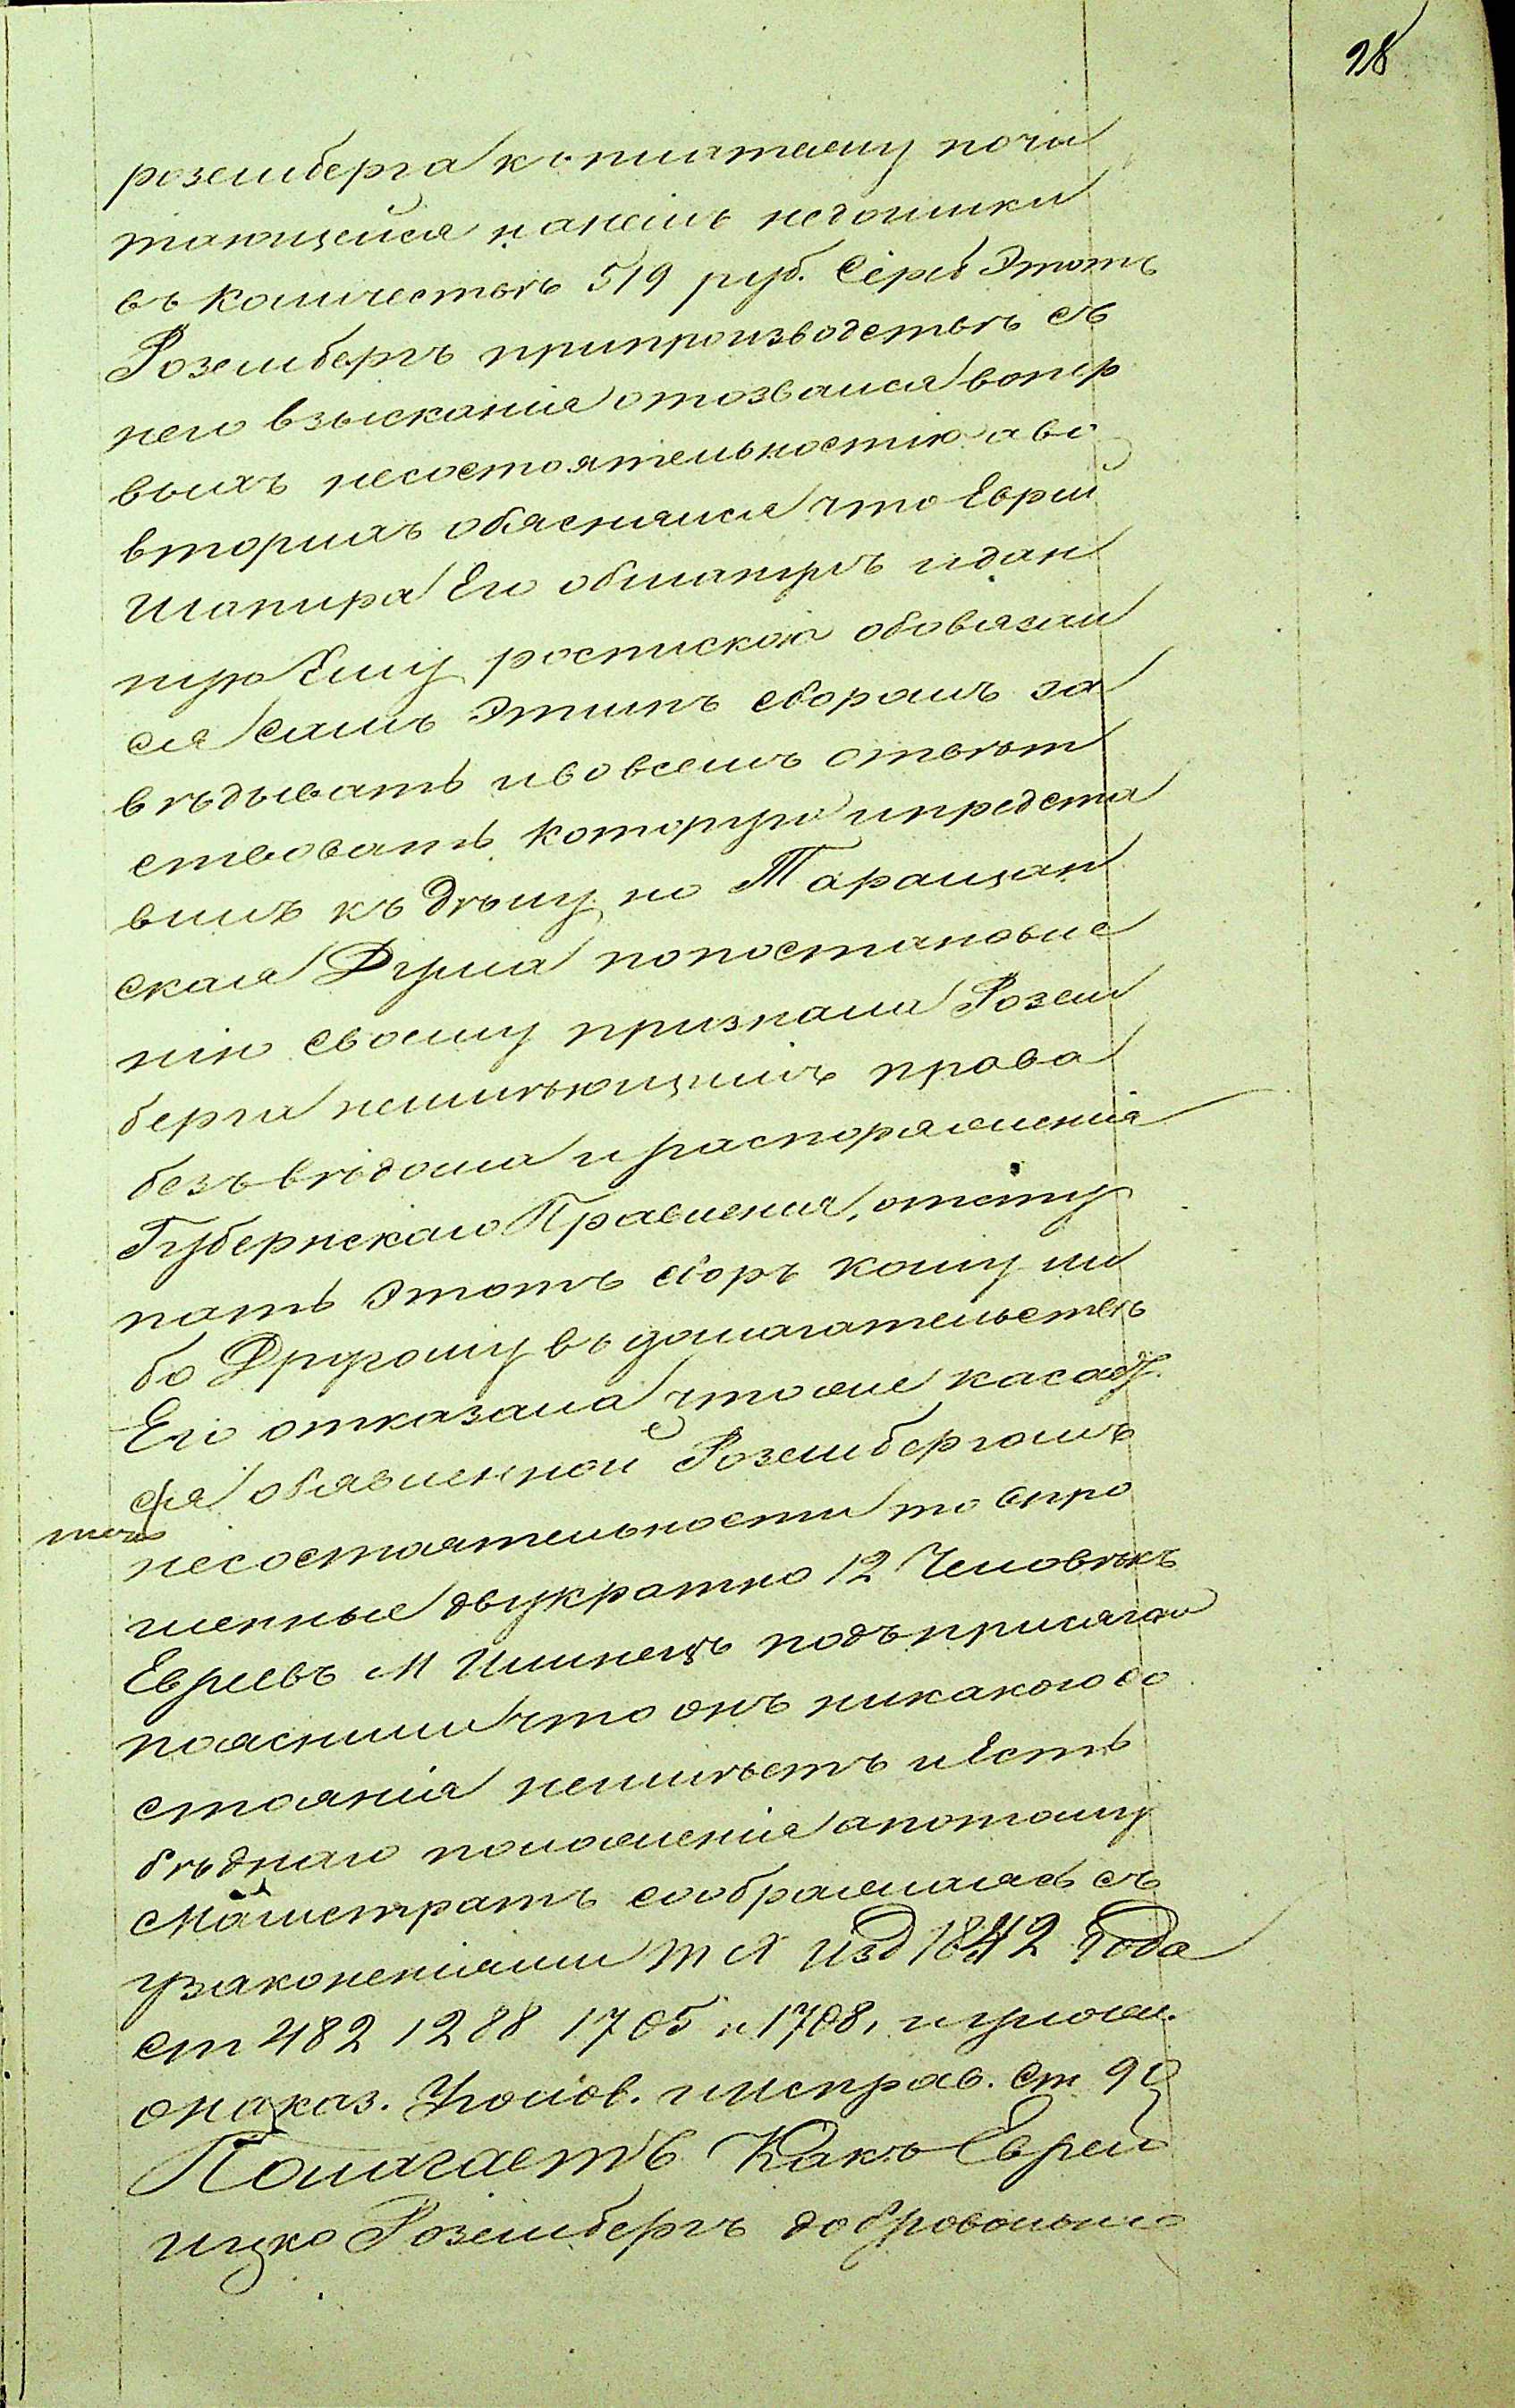 98
розембергa к платежу почи
тающейся нанемъ недоимки
въ количествѣ 519 руб. Сереб Этотъ
Розембергъ припроизводствѣ съ
него взысканія отозвался вопер
выхъ несостоятельностію а во
вторыхъ обяснялся что Еврей
Шапира Его обманулъ идан
ную Ему роспискою обовязал
ся самъ Этимъ сборомъ за
вѣдывать ивовсемъ отвѣт
ствовать которую ипредста
вилъ къ дѣлу но Таращан
ская Дума попостановле
нію своему признала Розем
берга неимѣющимъ права
безъ вѣдома ираспоряженія
Губернскаго Правленія, отсту
пать Этотъ сборъ кому ли
бо Другому въ домагательствѣ
Его отказала чтоже касает
ся обявленной Розембергомъ
несостоятельности то спро
шенные двукратно 12 Человѣкъ
Евреевъ М подъ присягою
пояснили что онъ никакого со
стоянія неимѣетъ иЕсть
бѣднаго положенія апотому
Магистратъ сображаясь съ
узаконеніями т X изд 1842 Года
ст 482 1288 1705 и 1708, иулож.
онаказ. Уголов. иисправ. ст 99
Полагаетъ Какъ Еврей
ицко Розембергъ добровольно